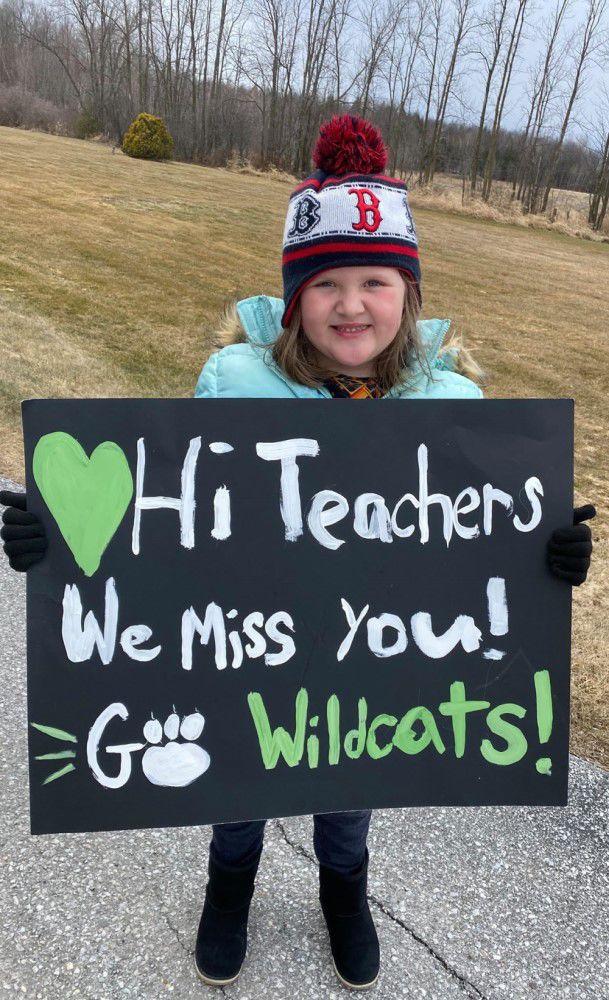 B B
Hi Teachers
We Miss You!
Go Wildcats!